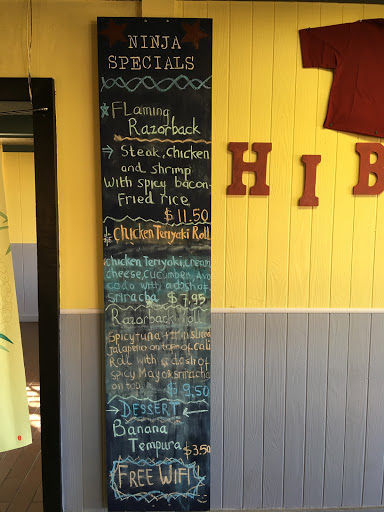 NINJA
SPECIALS
FLaming
Razorback
Steak, chicken
and shrimp
With spicy bacon-
Fried rice
$11.50
Chicken Teriyaki Roll
chicken Teriyaki, cream
cheese, Cucumber, Avo
cado with a dash of
sriracha $7.95
Razorback Roll
Spicy tuna + thin sliced
jalapeño on top of cali
Roll with a dash of
spicy Mayo & sriracha
on top. $9.50
DESSERT
Banana
Tempura $3.50
FREE WIFI
HIB